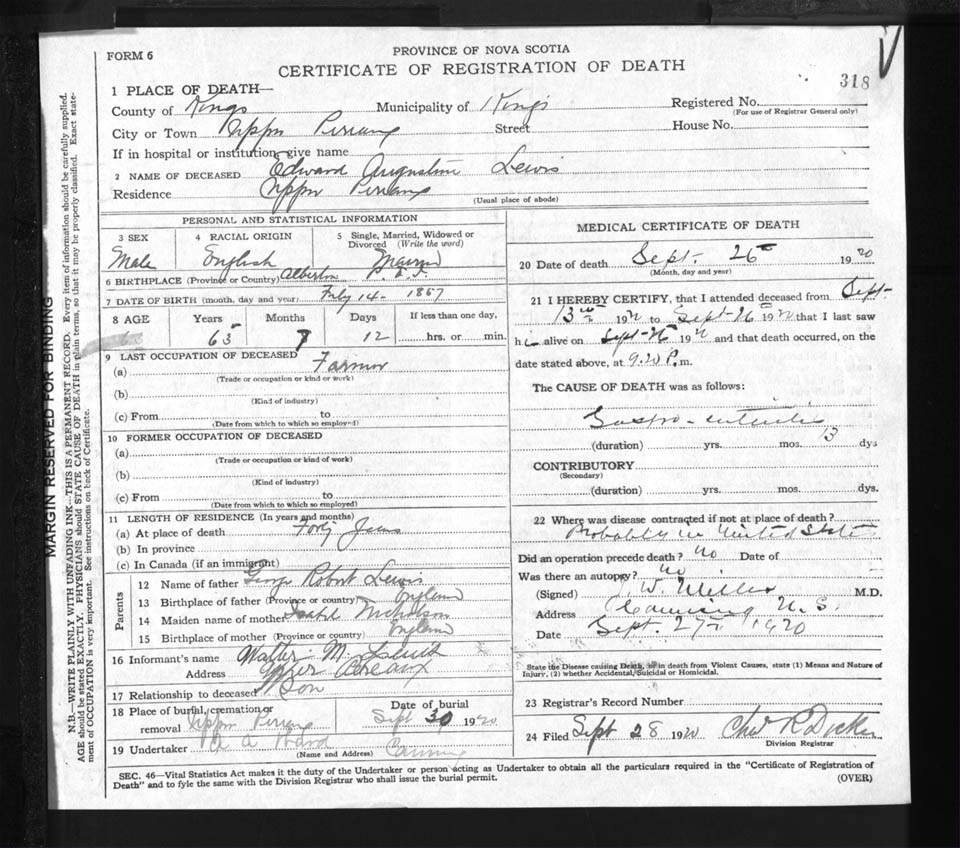 FORM 6
PROVINCE OF NOVA SCOTIA
CERTIFICATE OF REGISTRATION OF DEATH
318
1 PLACE OF DEATH—
County of Kings Municipality of Kings Registered No.
(For use of Registrar General only)
City or Town Upper Street House No.
If in hospital or institution, give name
2 NAME OF DECEASED Edward Augustine Lewis
Residence Upper
(Usual place of abode)
PERSONAL AND STATISTICAL INFORMATION
3 SEX 4 RACIAL ORIGIN 5 Single, Married, Widowed or Divorced (Write the word)
Male English Married
6 BIRTHPLACE (Province or Country) Alberton P.E.I.
7 DATE OF BIRTH (month, day and year) 14 - 1857
8 AGE Years Months Days If less than one day,
63 7 12 hrs. or min.
9 LAST OCCUPATION OF DECEASED
(a) Farmer
(Trade or occupation or kind or work)
(b)
(Kind of industry)
(c) From to
(Date from which to which so employed)
10 FORMER OCCUPATION OF DECEASED
(a)
(Trade or occupation or kind of work)
(b)
(Kind of industry)
(c) From to
(Date from which to which so employed)
11 LENGTH OF RESIDENCE (In years and months)
(a) At place of death Forty Years
(b) In province
(c) In Canada (if an immigrant)
Parents
12 Name of father George Robert Lewis
13 Birthplace of father (Province or country) England
14 Maiden name of mother Isabel Nicholson
15 Birthplace of mother (Province or country) England
16 Informant's name Walter M.
Address
17 Relationship to deceased Son
18 Place of burial, cremation or removal Upper Date of burial Sept 30 1920
19 Undertaker Canning
(Name and Address)
MEDICAL CERTIFICATE OF DEATH
20 Date of death Sept. 26th 1920
(Month, day and year)
21 I HEREBY CERTIFY, that I attended deceased from Sept-
13th 1920 to Sept-26 1920 that I last saw
him alive on Sept-26 1920 and that death occurred, on the
date stated above, at 9.20 P.m.
The CAUSE OF DEATH was as follows:
Gastro-enteritis
(duration) yrs. mos. 13 dys
CONTRIBUTORY
(Secondary)
(duration) yrs. mos. dys.
22 Where was disease contracted if not at place of death?
Probably in United States
Did an operation precede death? No Date of
Was there an autopsy? no
(Signed) W. Miller M.D.
Address Canning N.S.
Date Sept. 27th 1920
State the Disease causing Death, or in death from Violent Causes, state (1) Means and Nature of
Injury, (2) whether Accidental, Suicidal or Homicidal.
23 Registrar's Record Number
24 Filed Sept 28 1920 Chas R Dickie
Division Registrar
SEC. 46—Vital Statistics Act makes it the duty of the Undertaker or person acting as Undertaker to obtain all the particulars required in the "Certificate of Registration of
Death" and to fyle the same with the Division Registrar who shall issue the burial permit. (OVER)
MARGIN RESERVED FOR BINDING
N.B.—WRITE PLAINLY WITH UNFADING INK—THIS IS A PERMANENT RECORD. Every item of information should be carefully supplied.
AGE should be stated EXACTLY. PHYSICIANS should STATE CAUSE OF DEATH in plain terms, so that it may be properly classified. Exact state-
ment of OCCUPATION is very important. See instructions on back of Certificate.